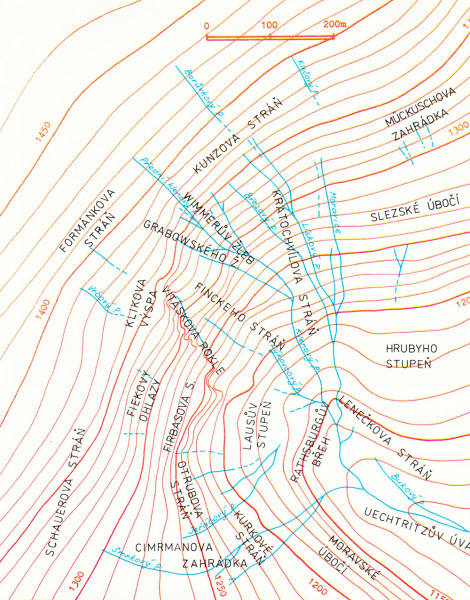 0
100
200m
Borůvkový p.
Klečový p.
1450
KUNZOVA STRÁŇ
MUCKUSCHOVA
ZAHRÁDKA
1300
FORMÁNKOVA
STRÁŇ
WIMMERŮV ŽLEB
GRABOWSKÉHO Ž.
KRATOCHVÍLOVA STRÁŇ
Moravice
SLEZSKÉ ÚBOČÍ
Vrbový p.
1400
KLIKOVA
VÝSPA
VITÁSKOVA ROKLE
FINCKEHO STRÁŇ
1200
HRUBYHO
STUPEŇ
FIEKOVY
OHLAZY
FIRBASOVA S.
LAUSŮV
STUPEŇ
RATHSBURGŮV
BŘEH
LENEČKOVA STRÁŇ
SCHAUEROVA STRÁŇ
OTRUBOVA
STRÁŇ
KURKOVÉ
STRÁŇ
Bukový p.
UECHTRITZŮV ÚVA
CIMRMANOVA
ZAHRÁDKA
Smrkový p.
MORAVSKÉ
ÚBOČÍ
1300
1250
1200